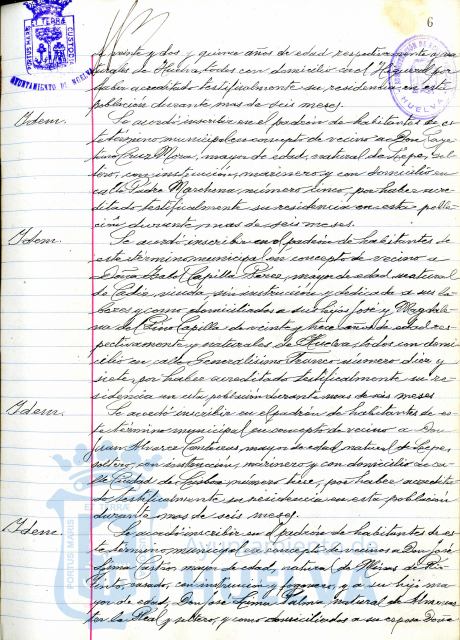 6
AYUNTAMIENTO DE HUELVA
HUELVA
veinte y dos y quince años de edad respectivamente y na-
turales de Huelva todos con domicilio en el Humeral por
haber acreditado testificalmente su residencia en esta
población durante mas de seis meses.
Idem. Se acordó inscribir en el padrón de habitantes de es-
te término municipal en concepto de vecino a Don Caye-
tano Cruz Mora, mayor de edad, natural de Lepe, sol-
tero, con instrucción, marinero y con domicilio en
calle Padre Marchena número cinco, por haber acre-
ditado testificalmente su residencia en esta pobla-
ción durante mas de seis meses.
Idem. Se acordó inscribir en el padrón de habitantes de
este término municipal en concepto de vecino a
Doña Isabel Capilla Pérez, mayor de edad natural
de Cádiz, viuda, sin instrucción y dedicada a sus la-
bores y como domiciliados a sus hijos José y Magdale-
na del Pino Capilla de veinte y trece años de edad res-
pectivamente y naturales de Huelva, todos con domi-
cilio en calle Generalísimo Franco número diez y
siete, por haber acreditado testificalmente su re-
sidencia en esta población durante mas de seis meses
Idem. Se acordó inscribir en el padrón de habitantes de es-
te término municipal en concepto de vecino a Don
Juan Alvarez Contreras mayor de edad natural de Lepe
soltero, con instrucción, marinero y con domicilio en ca-
lle Ciudad de número trece, por haber acredita-
do testificalmente su residencia en esta población
durante mas de seis meses.
Idem. Se acordó inscribir en el padrón de habitantes de es-
te término municipal en concepto de vecinos a Don José
Lima mayor de edad, natural de Minas de Rio-
tinto, casado, con instrucción y fogonero, y a su hijo ma-
yor de edad, Don José Lima Palma, natural de
la Real y soltero, y como domiciliados a su esposa Doña
EL TERRÆ
PORTUS MARIS
Ayuntamiento de
HUELVA